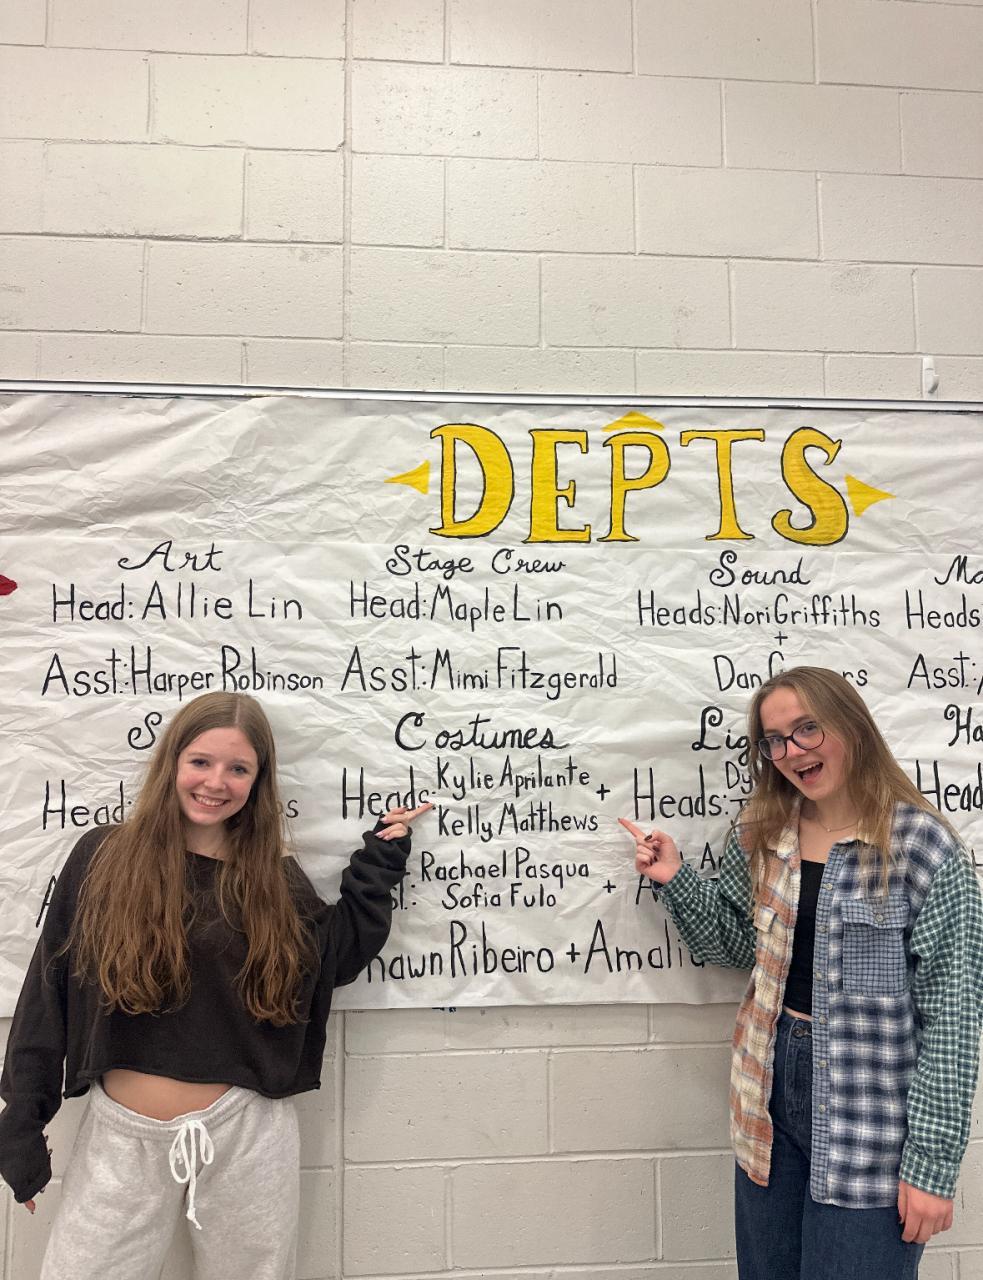 DEPTS
Art
Head: Allie Lin
Asst.: Harper Robinson
Stage Crew
Head: Maple Lin
Asst.: Mimi Fitzgerald
Sound
Heads: Nori Griffiths
+
Dan
Heads
Asst.:
Head:
Costumes
Heads: Kylie Aprilante +
Kelly Matthews
Rachael Pasqua
Sofia Fulo +
Heads:
Head
Ribeiro + Amali